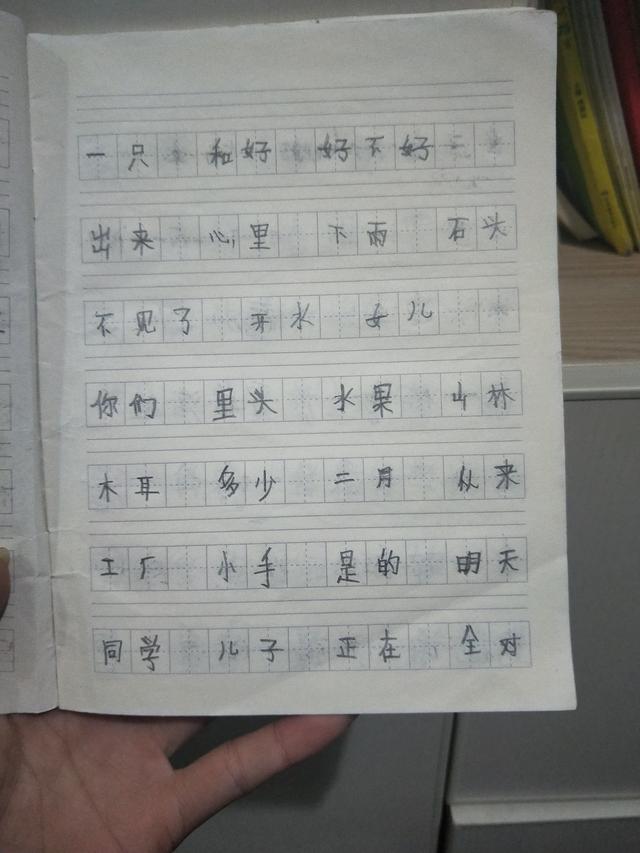 一只 和好 好不好
出来 心里 下雨 石头
不见了 开水 女儿
你们 里头 水果 山林
木耳 多少 二月 从来
工厂 小手 是的 明天
同学 儿子 正在 全对